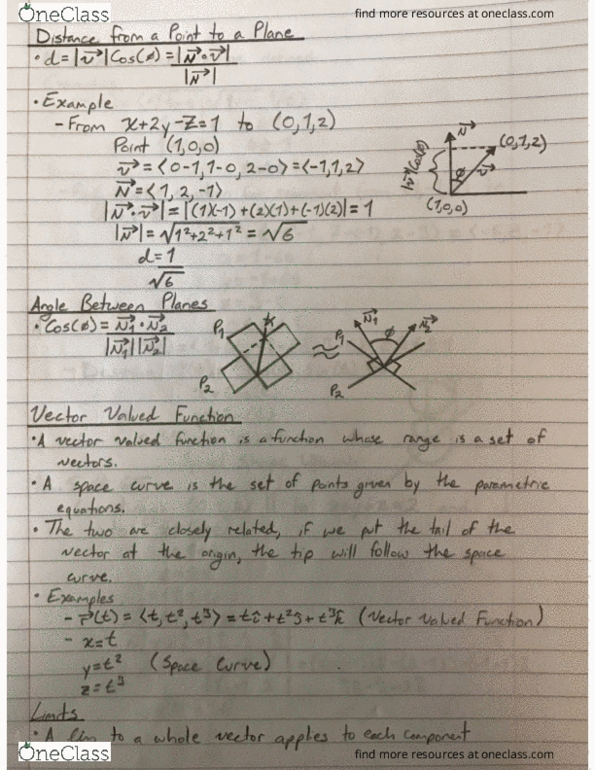 OneClass
find more resources at oneclass.com
Distance from a Point to a Plane
• d = |v⃗|Cos(φ) = |N⃗•v⃗|
|N⃗|
• Example
- From x+2y-z=1 to (0,1,2)
Point (1,0,0)
v⃗ = <0-1, 1-0, 2-0> = <-1,1,2>
N⃗ = <1, 2, -1>
|N⃗•v⃗| = |(1)(-1)+(2)(1)+(-1)(2)| = 1
|N⃗| = √1²+2²+1² = √6
d = 1
√6
N⃗
(0,1,2)
|v⃗|Cos(φ)
φ
v⃗
(1,0,0)
Angle Between Planes
• Cos(φ) = N⃗₁•N⃗₂
|N⃗₁||N⃗₂|
P₁
P₂
≈
P₁
N⃗₁
φ
N⃗₂
P₂
Vector Valued Function
• A vector valued function is a function whose range is a set of
vectors.
• A space curve is the set of points given by the parametric
equations.
• The two are closely related, if we put the tail of the
vector at the origin, the tip will follow the space
curve.
• Examples
- r⃗(t) = <t, t², t³> = tî+t²ĵ+t³k̂ (Vector Valued Function)
- x=t
y=t² (Space Curve)
z=t³
Limits
• A lim to a whole vector applies to each component
OneClass
find more resources at oneclass.com